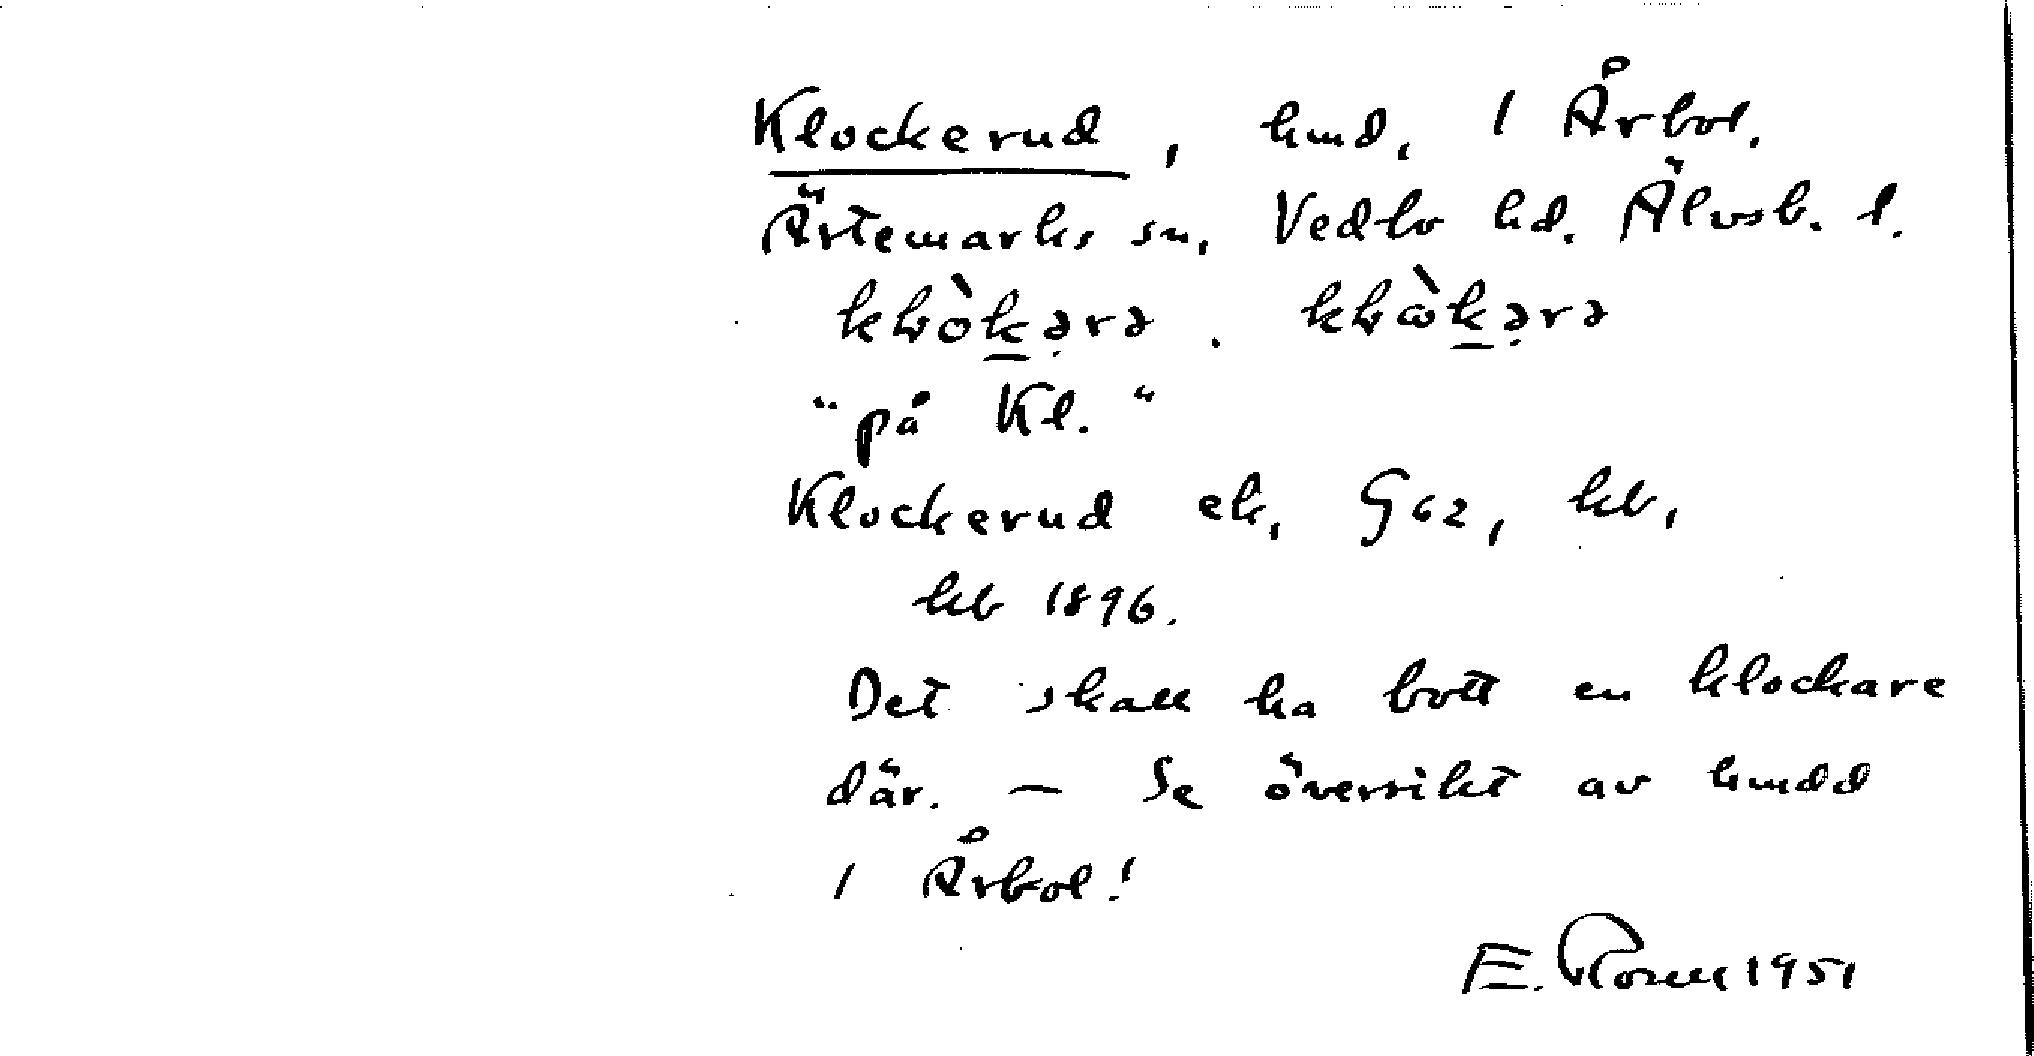 Klockerud, hmd, 1 Årbol.
Ärtemarks sn, Vedbo hd. Älvsb. l.
"på Kl."
Klockerud ek, G62, kb,
kb 1896.
Det skall ha bott en klockare
där. — Se översikt av hmdd
1 Årbol!
E. 1951